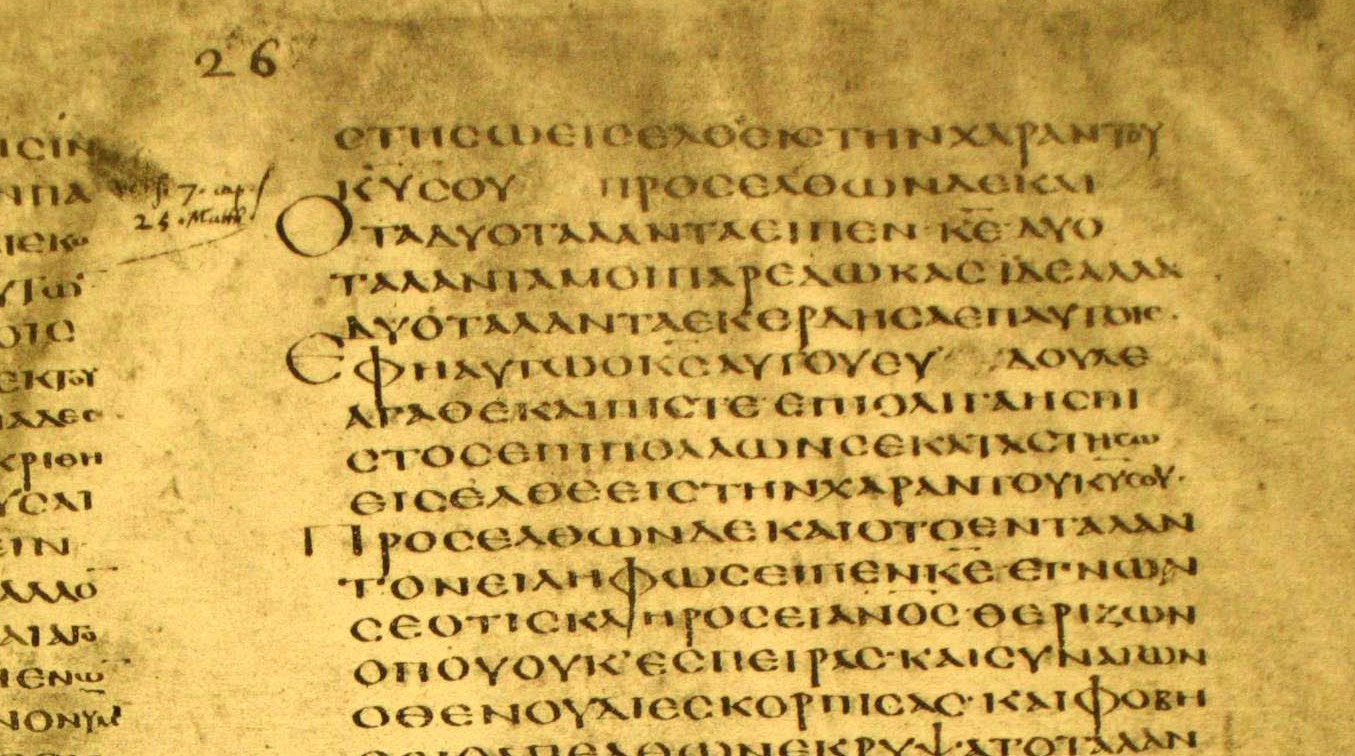 26
ΙCΙΝ
ΝΠΑ
ΟΙC
ΕΚΤΟΥ
ΑΛΕC
ΚΡΙΘΗ
ΥCΑΙ
ΕΙΝ
ΛΛΟ̅
7.
25. Matth.
CΤΗCΩΕΙCΕΛΘΕΕΙCΤΗΝΧΑΡΑΝΤΟΥ
Κ̅Υ̅CΟΥ ΠΡΟCΕΛΘΩΝΔΕΚΑΙ
ΟΤΑΔΥΟΤΑΛΑΝΤΑΕΙΠΕΝ·Κ̅Ε̅·ΔΥΟ
ΤΑΛΑΝΤΑΜΟΙΠΑΡΕΔΩΚΑC ΙΔΕΑΛΛΑ
ΔΥΟΤΑΛΑΝΤΑΕΚΕΡΔΗCΑΕΠΑΥΤΟΙC·
ΕΦΗΑΥΤΩΟΚ̅C̅ΑΥΤΟΥΕΥ ΔΟΥΛΕ
ΑΓΑΘΕΚΑΙΠΙCΤΕ ΕΠΙΟΛΙΓΑΗCΠΙ
CΤΟCΕΠΙΠΟΛΛΩΝCΕΚΑΤΑCΤΗCΩ
ΕΙCΕΛΘΕΕΙCΤΗΝΧΑΡΑΝΤΟΥΚ̅Υ̅CΟΥ·
ΠΡΟCΕΛΘΩΝΔΕΚΑΙΟΤΟΕΝΤΑΛΑΝ
ΤΟΝΕΙΛΗΦΩCΕΙΠΕΝΚ̅Ε̅·ΕΓΝΩΝ
CΕΟΤΙCΚΛΗΡΟCΕΙΑΝΟ̅C̅·ΘΕΡΙΖΩΝ
ΟΠΟΥΟΥΚ'ΕCΠΕΙΡΑC·ΚΑΙCΥΝΑΓΩΝ
ΟΘΕΝΟΥΔΙΕCΚΟΡΠΙCΑC·ΚΑΙΦΟΒΗ
ΘΕΙCΑΠΕΛΘΩΝΕΚΡΥΨΑΤΟΤΑΛΑΝ